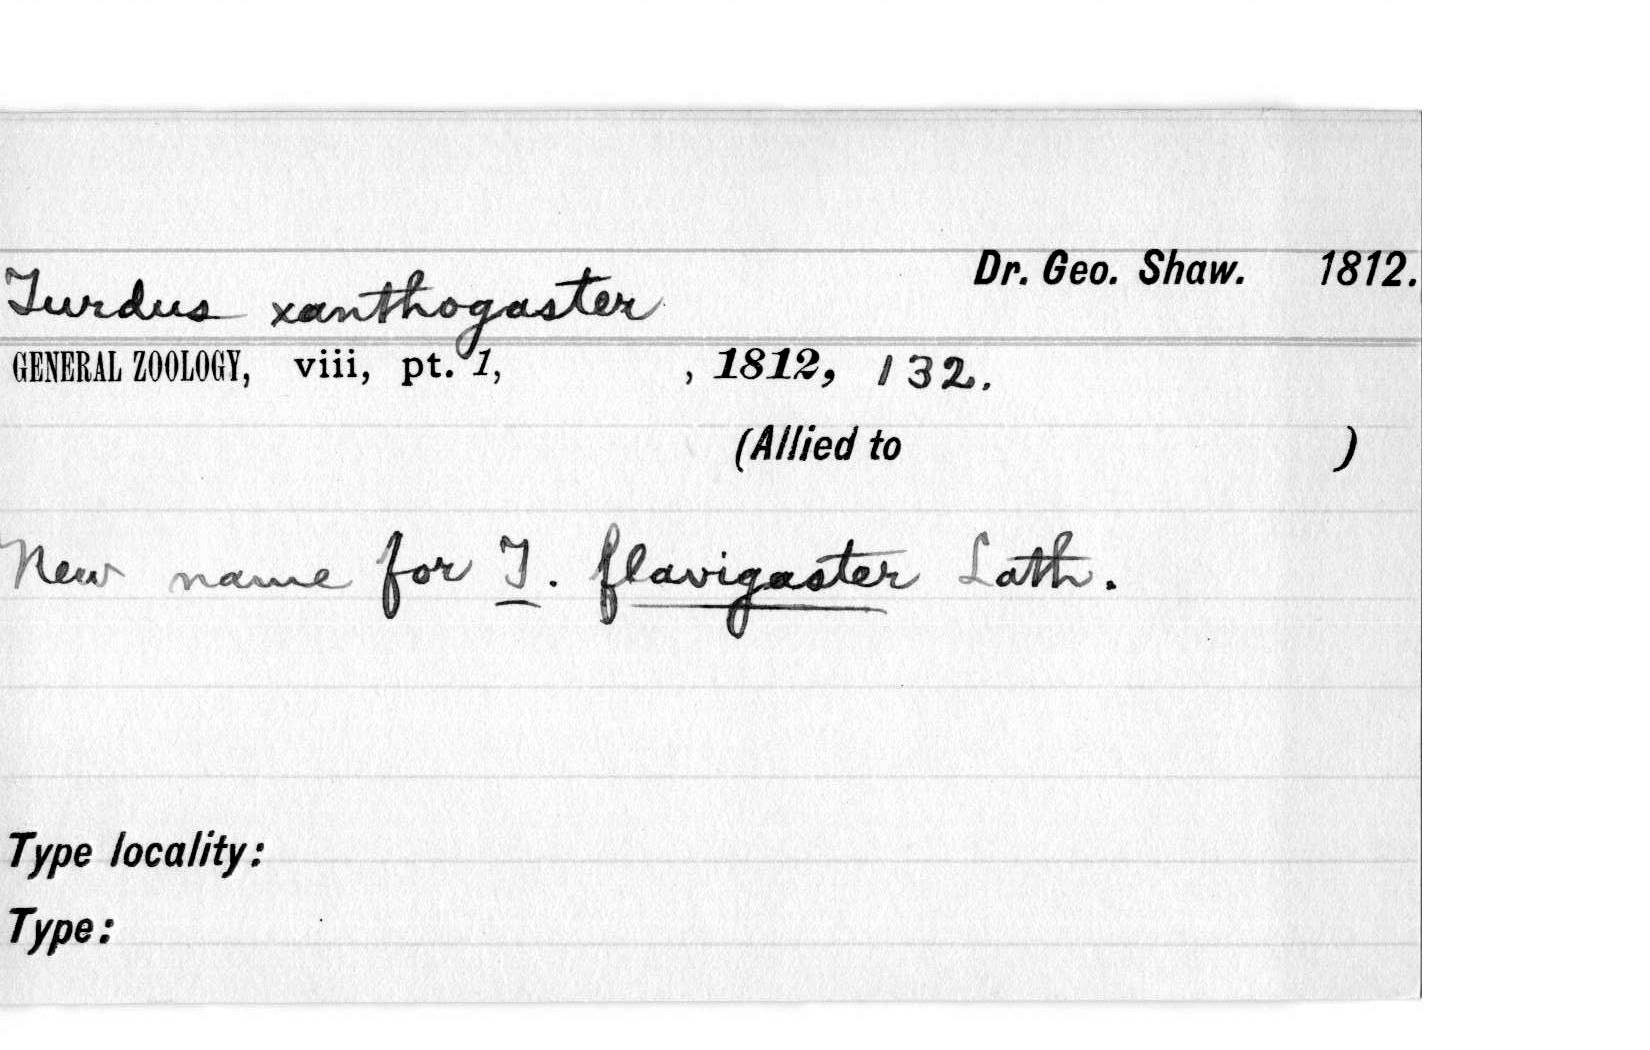 Dr. Geo. Shaw. 1812.
Turdus xanthogaster
GENERAL ZOOLOGY, viii, pt. 1, , 1812, 132.
(Allied to )
New name for T. flavigaster Lath.
Type locality:
Type: